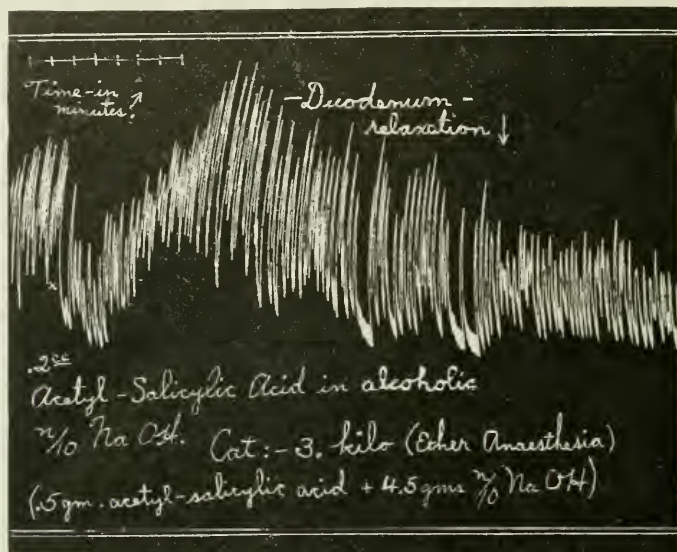 Time-in
minutes.
-Duodenum-
relaxation ↓
x
.2cc
Acetyl-Salicylic Acid in alcoholic
n/10 Na OH. Cat:-3. kilo (Ether Anaesthesia)
(.5gm. acetyl-salicylic acid + 4.5gms n/10 Na OH)